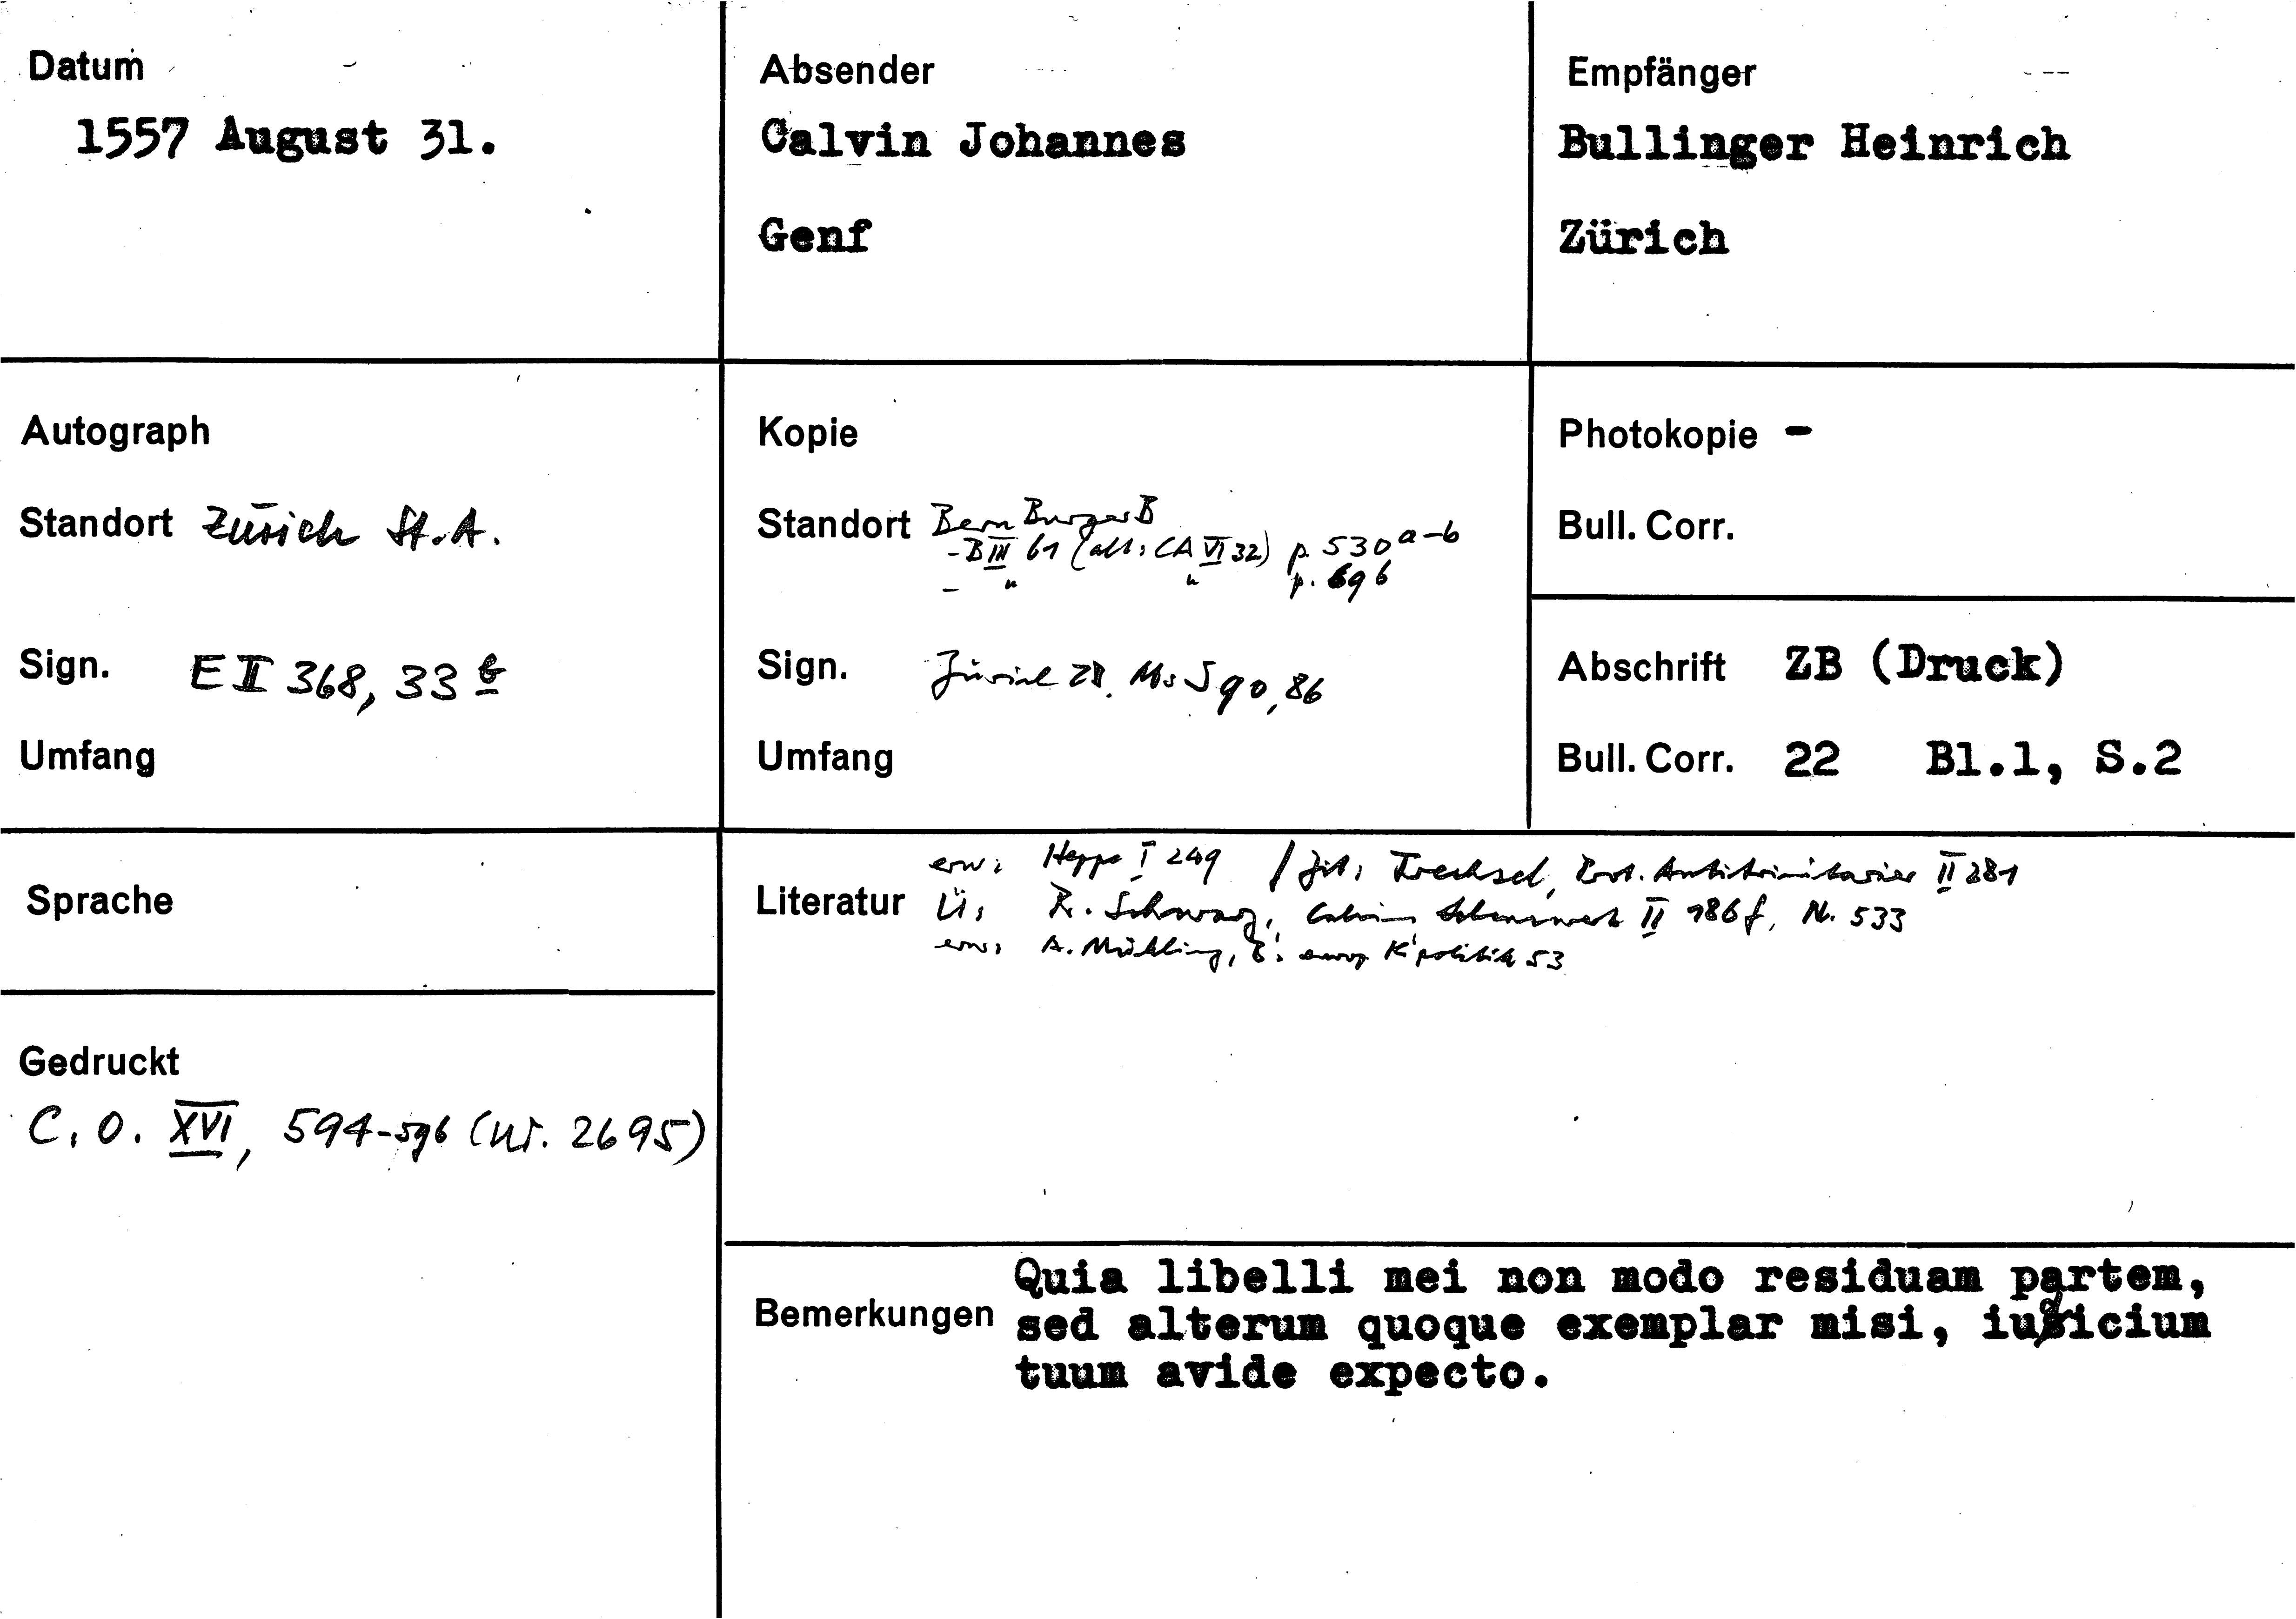 Datum
1557 August 31.
Absender
Calvin Johannes
Genf
Empfänger
Bullinger Heinrich
Zürich
Autograph
Standort Zürich St.A.
Sign. E II 368, 33 b
Umfang
Kopie
Standort Bern BurgerB
- B III 61 (alt: CA VI 32) p. 530 a-b
- " " p. 696
Sign. Zürich ZB. Ms S 90, 86
Umfang
Photokopie -
Bull. Corr.
Abschrift ZB (Druck)
Bull. Corr. 22 Bl.1, S.2
Sprache
Gedruckt
C. O. XVI, 594-596 (Nr. 2695)
Literatur
erw: Heppe I 249 / zit: Trechsel, Prot. Antitrinitarier II 281
Ü: R. Schwarz, Calvins Lebenswerk II 186 f, N. 533
erw: A. Mühling, B's europ K'politik 53
Bemerkungen
Quia libelli mei non modo residuam partem,
sed alterum quoque exemplar misi, iudicium
tuum avide expecto.